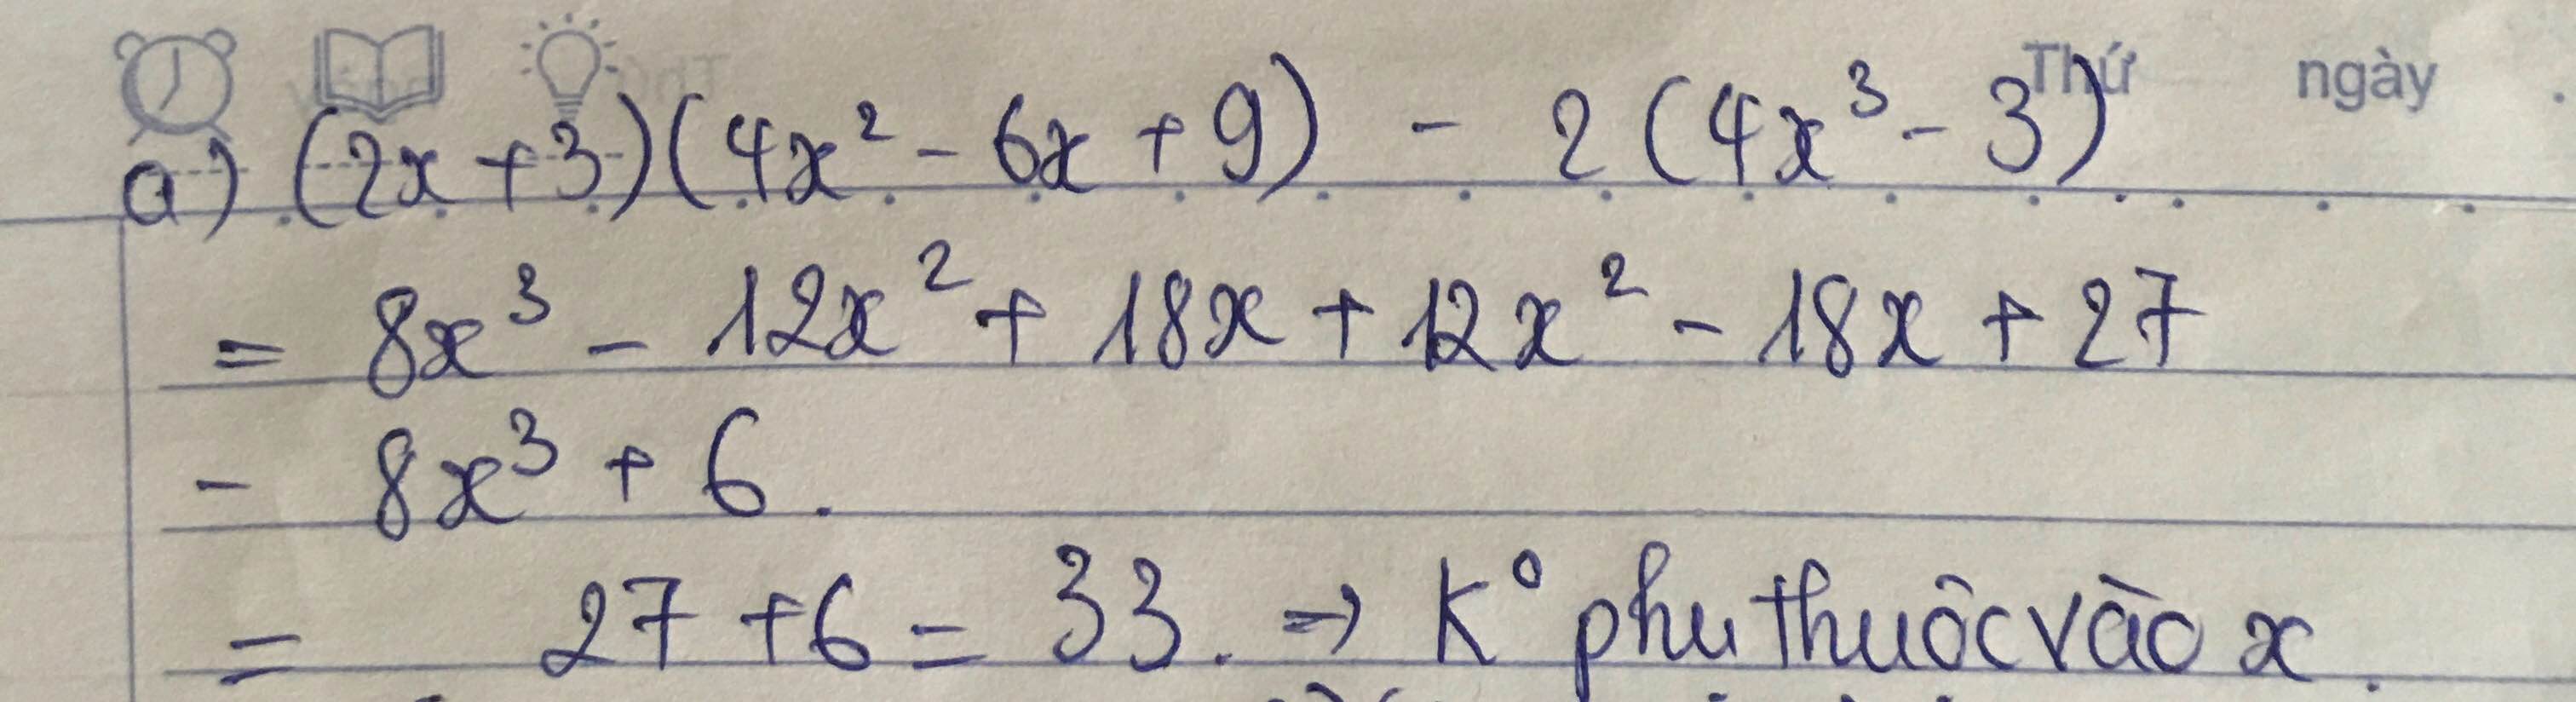 Thứ ngày
a) (2x + 3)(4x² - 6x + 9) - 2(4x³ - 3)
= 8x³ - 12x² + 18x + 12x² - 18x + 27
- 8x³ + 6.
= 27 + 6 = 33. => K° phụ thuôc vào x.